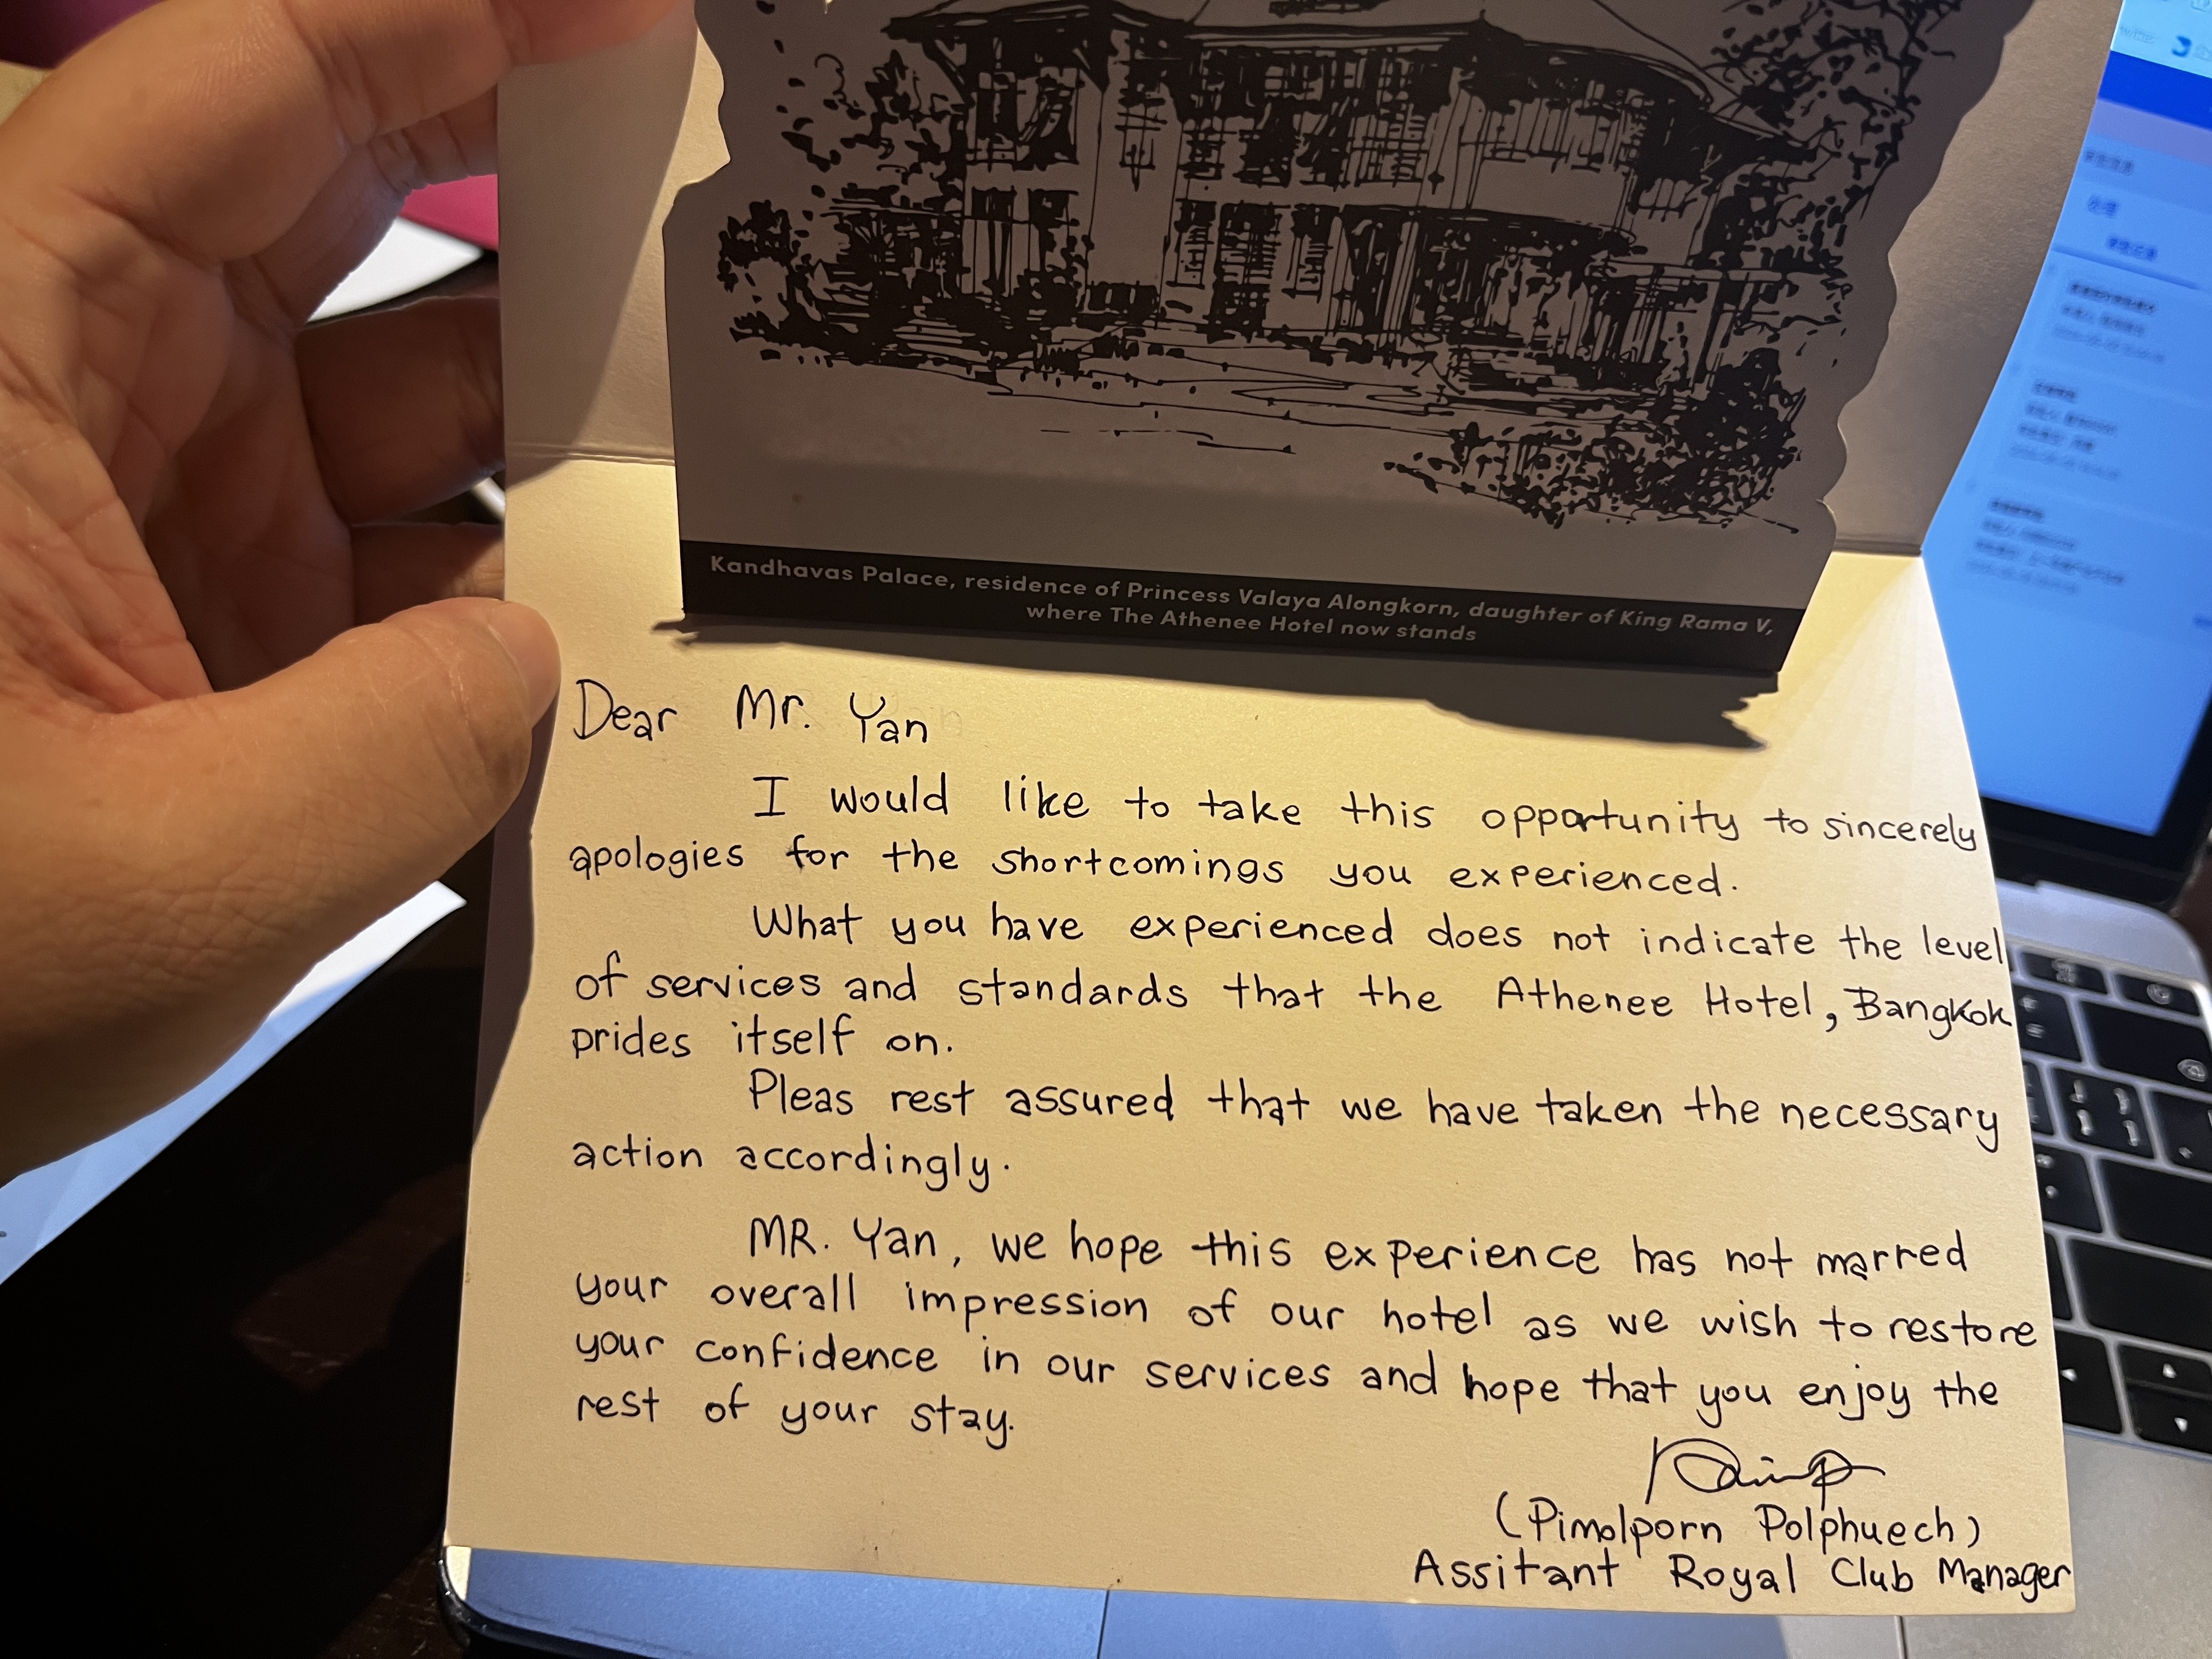 Kandhavas Palace, residence of Princess Valaya Alongkorn, daughter of King Rama V,
where The Athenee Hotel now stands
Dear Mr. Yan
I would like to take this opportunity to sincerely
apologies for the shortcomings you experienced.
What you have experienced does not indicate the level
of services and standards that the Athenee Hotel, Bangkok
prides itself on.
Pleas rest assured that we have taken the necessary
action accordingly.
MR. Yan, we hope this experience has not marred
your overall impression of our hotel as we wish to restore
your confidence in our services and hope that you enjoy the
rest of your stay.
(Pimolporn Polphuech)
Assitant Royal Club Manager